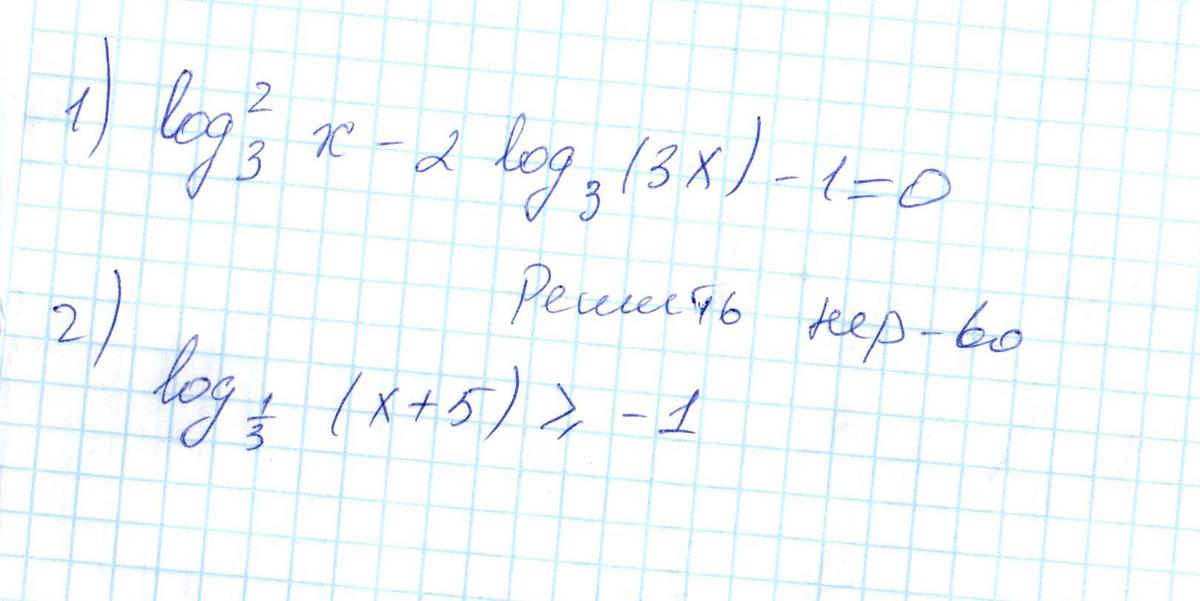 1) log₃² x - 2 log₃ (3x) - 1 = 0
Решить нер-во
2) log_{1/3} (x + 5) ⩾ - 1